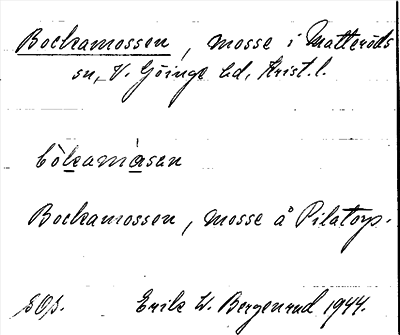 Bockamossen, mosse i Matteröds
sn, V. Göinge hd, Krist. l.
bòkamåsan
Bockamossen, mosse å Pilatorp.
Erik W. Bergenrud 1944.